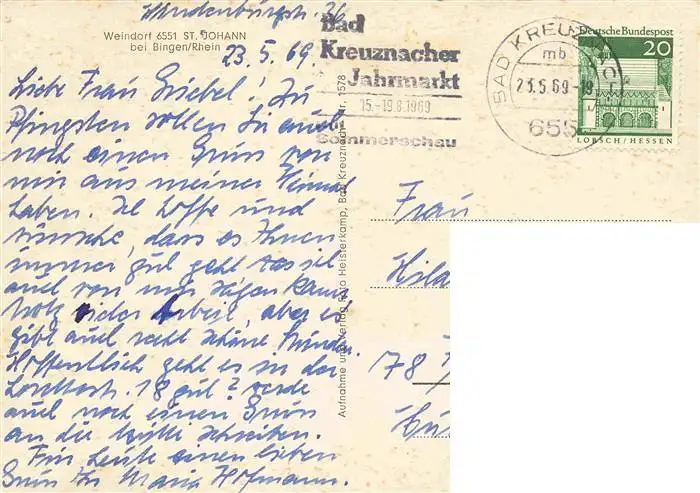 Hindenburgstr. 36
Weindorf 6551 ST. JOHANN
bei Bingen/Rhein
23.5.69.
Liebe Frau Griebel! Zu
Pfingsten sollen Sie auch
noch einen Gruss von
mir aus meiner Heimat
haben. Ich hoffe und
wünsche, dass es Ihnen
immer gut geht was ich
auch von mir sagen kann
trotz vieler Arbeit, aber es
gibt auch recht schöne Stunden
Hoffentlich geht es in der
18 gut? werde
auch noch einen Gruss
an die schreiben.
Für heute einen lieben
Gruss Ihr Maria Hofmann.
Bad
Kreuznacher
Jahrmarkt
15.-19.8.1969
mit
Sommerschau
BAD KREUZNACH
mb
23.5.69-19
655
Deutsche Bundespost
20
LORSCH/HESSEN
Aufnahme und Verlag Foto Heisterkamp, Bad Kreuznach Nr. 1578
Frau
Hild
78